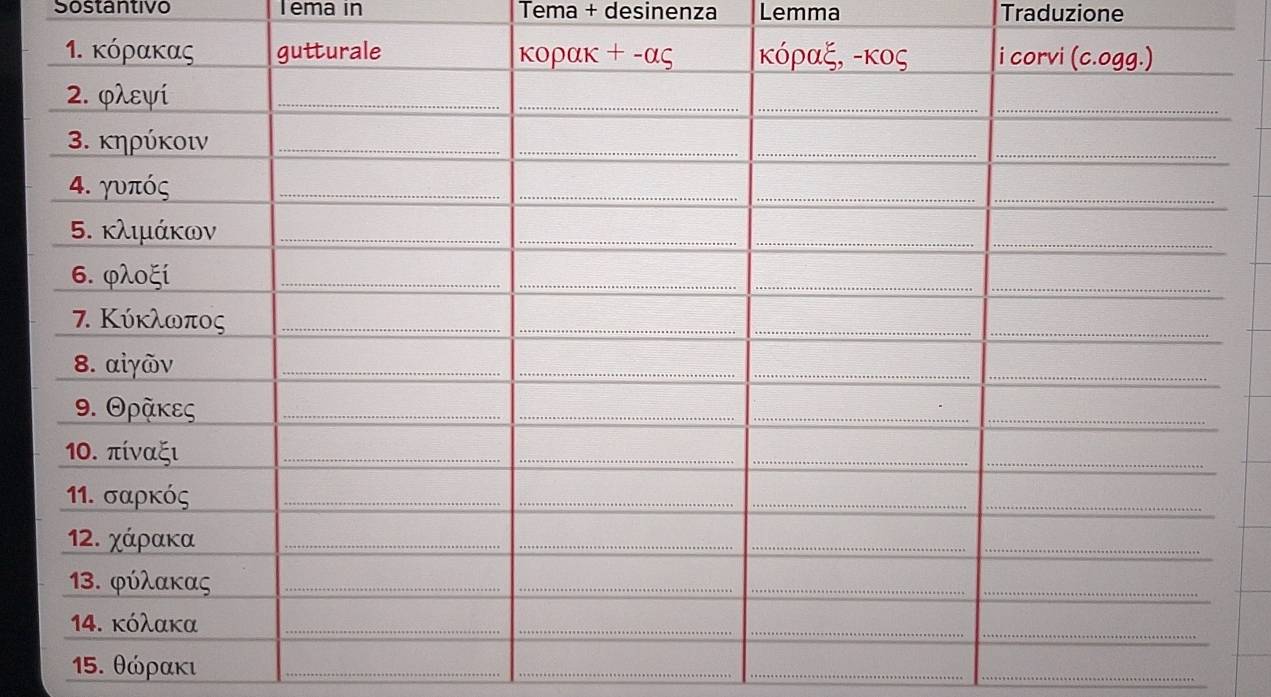 Sostantivo Tema in Tema + desinenza Lemma Traduzione
1. κόρακας gutturale κορακ + -ας κόραξ, -κος i corvi (c.ogg.)
2. φλεψί
3. κηρύκοιν
4. γυπός
5. κλιμάκων
6. φλοξί
7. Κύκλωπος
8. αἰγῶν
9. Θρᾷκες
10. πίναξι
11. σαρκός
12. χάρακα
13. φύλακας
14. κόλακα
15. θώρακι